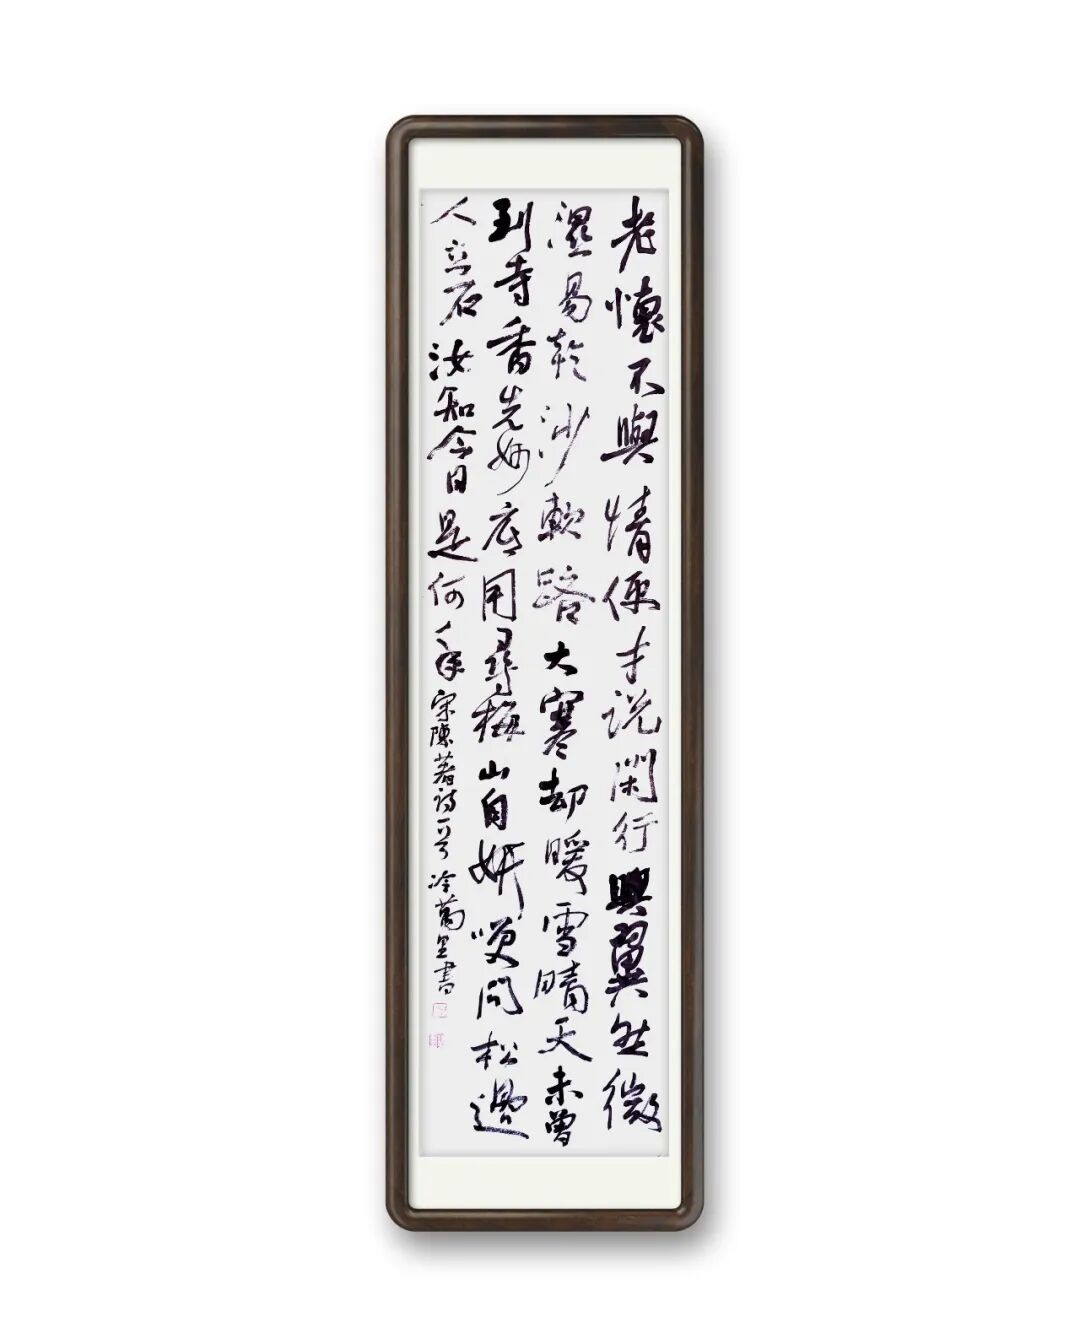 老懷不與情便才说閑行興翼然微
濕易乾沙軟路大寒却暖雪晴天未曾
到寺香先妙底用尋梅山自妍嘆問松邊
人立石汝知今日是何年宋陳著詩一首冷萬里書